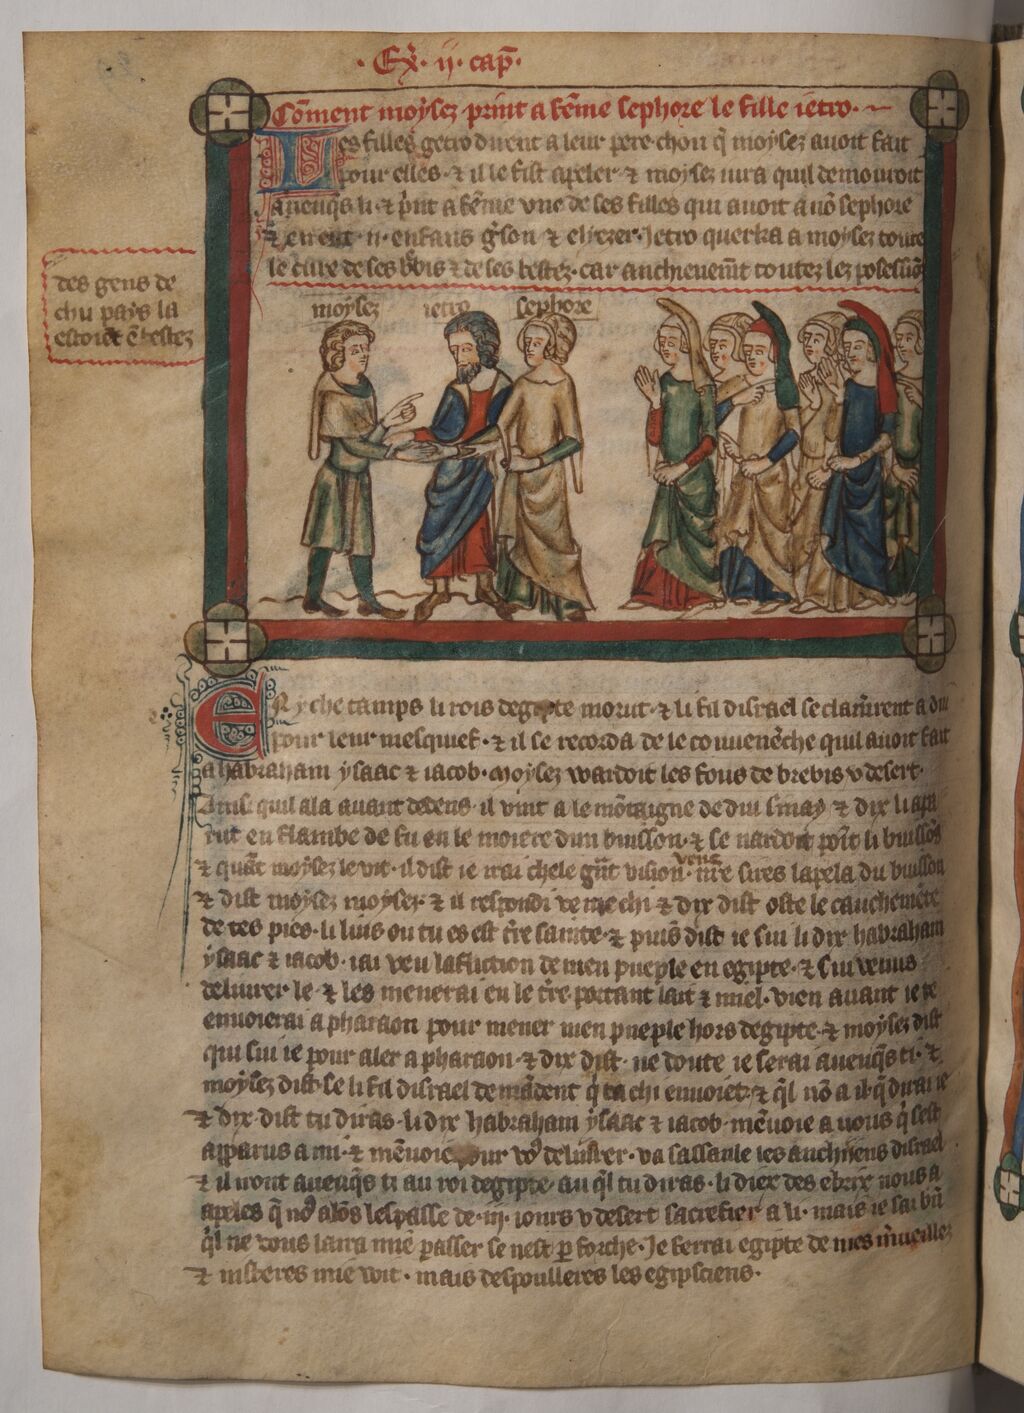 Ex. ii. cap̃.
Cõment moysez print a fẽme sephore le fille ietro.
Les filles getro dirent a leur pere chou q̃ moysez auoit fait
pour elles. ⁊ il le fist apeler ⁊ moysez iura quil demouroit
aueuq̃s li. ⁊ p̃nt a fẽme vne de ses filles qui auoit a nõ sephore
⁊ eirent .ii. enfans g̃son ⁊ elyezer. Jetro querka a moysez toute
le cure de ses b̃bis ⁊ de ses bestez. car anchienem̃t toutez lez posessiõs
des gens de
chu pays la
estoiẽt ẽ bestez
moysez ietro sephore
En yche tamps li rois degipte morut. ⁊ li fil disrael se clam̃rent a diu
pour leur meschief. ⁊ il se recorda de le conuenẽche quil auoit fait
a habraham ysaac ⁊ iacob. Moysez wardoit les fous de brebis v desert.
Ainsi quil ala auant dedens. il vint a le mõtaigne de diu sinay ⁊ dix li apa
rut en flambe de fu en le moiere dun buisson. ⁊ se nardoit poĩt li buissõs
⁊ quãt moysez le vit. il dist ie irai chele g̃nt vision. vene nr̃e sires lapela du buisson
⁊ dist moysez moysez. ⁊ il respondi ve me chi ⁊ dix dist oste le cauchemẽte
de tes pies. li lius ou tu es est t̃re sainte. ⁊ puis dist ie sui li dix habraham
ysaac ⁊ iacob. iai veu lafliction de men pueple en egipte. ⁊ sui venus
deliurer le. ⁊ les menerai en le t̃re portant lait ⁊ miel. vien auant ie te
enuoierai a pharaon pour mener men pueple hors degipte. ⁊ moysez dist
qui sui ie pour aler a pharaon. ⁊ dix dist. ne doute ie serai aueuq̃s ti. ⁊
moysez dist. se li fil disrael demãdent q̃ ta chi enuoiet. ⁊ q̃l nõ a il. q̃ dirai ie
⁊ dix dist tu diras. li dix habraham ysaac ⁊ iacob. mẽuoie a vous q̃ sest
apparus a mi. ⁊ mẽuoie pour vo9 deliurer. va sassanle les anchiiens disrael
⁊ il iront aueuq̃s ti au roi degipte. au q̃l tu diras. li diex des ebrix nous a
apeles q̃ no9 alõs lespasse de .iii. iours v desert sacrefier a li. mais ie sai bñ
q̃l ne vous laira miẽ passer se nest p forche. Je ferrai egipte de mes m̃ueillez
⁊ nisteres mie wit. mais despoulleres les egipsciens.